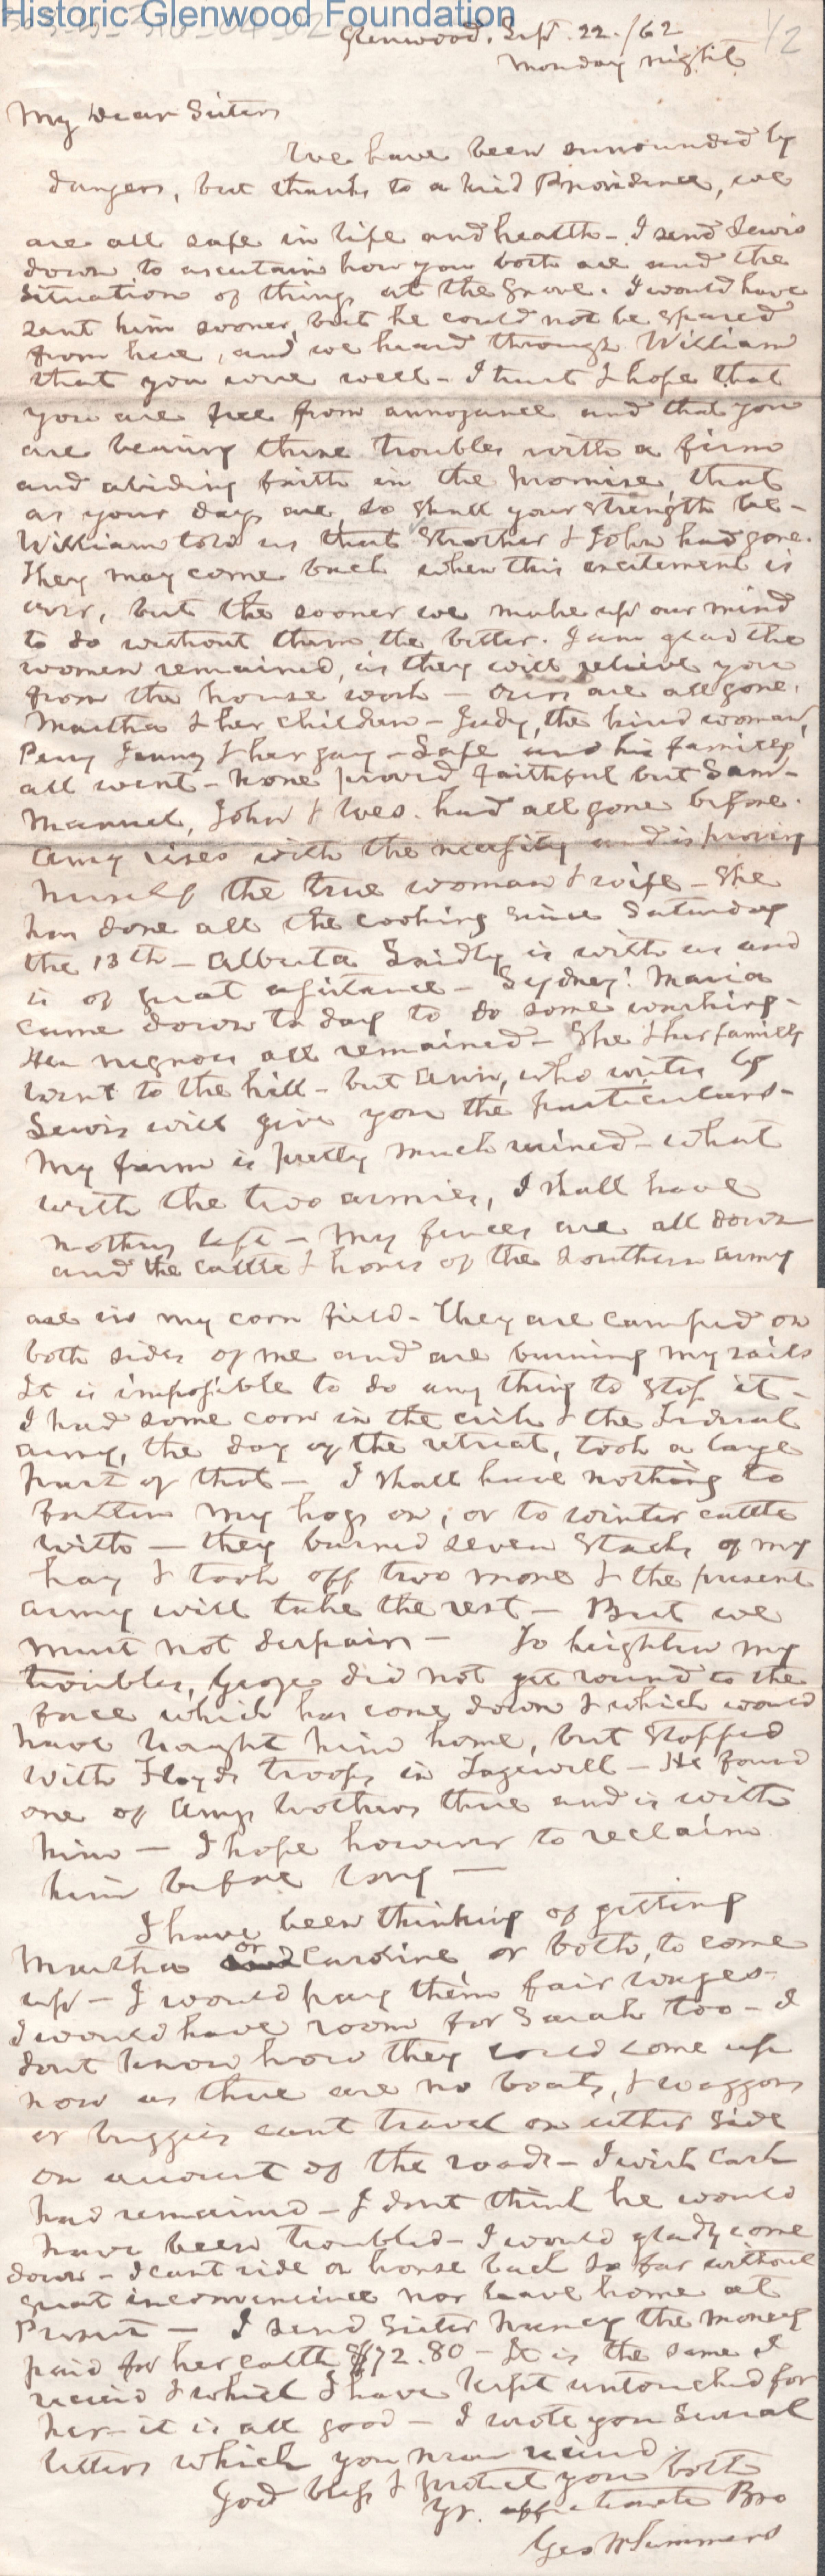 Historic Glenwood Foundation
1/2
Glenwood, Sept. 22. /62
Monday night
My Dear Sisters
We have been surrounded by
dangers, but thanks to a kind Providence, we
are all safe in life and health - I send Lewis
down to ascertain how you both are and the
situation of things at the Grove. I would have
sent him sooner, but he could not be spared
from here, and we heard through William
that you were well - I trust & hope that
you are free from annoyance and that you
are bearing these troubles with a firm
and abiding faith in the promise, that
as your days are, so shall your strength be -
William told us that Strother & John had gone.
They may come back when this excitement is
over, but the sooner we make up our mind
to do without them the better. I am glad the
women remained, as they will relieve you
from the house work - Ours are all gone.
Martha & her children - Judy, the hired woman,
Peny Jenny & her gang - Safe and his family
all went - None proved faithful but Sam -
Manuel, John & Wes. had all gone before.
Amy rises with the necessity and is proving
herself the true woman & wife - She
has done all the cooking since Saturday
the 13th - Alberta is with us and
is of great assistance - Sydney's Maria
came down to day to do some washing -
Her negroes all remained - She & her family
went to the hill - but Ann, who writes by
Lewis will give you the particulars -
My farm is pretty much ruined - what
with the two armies, I shall have
nothing left - My fences are all down
and the cattle & horses of the Southern army
are in my corn field - They are camped on
both sides of me and are burning my rails
It is impossible to do any thing to stop it -
I had some corn in the crib & the Federal
army, the day of the retreat, took a large
part of that - I shall have nothing to
fatten my hogs on, or to winter cattle
with - they burned seven stacks of my
hay & took off two more & the present
army will take the rest - But we
must not despair - To heighten my
troubles, George did not get round to the
force which has come down & which would
have brought him home, but stopped
with Floyds troops in Tazewell - He found
one of Amys brothers there and is with
him - I hope however to reclaim
him before long -
I have been thinking of getting
Martha or Caroline, or both, to come
up - I would pay them fair wages -
I would have room for Sarah too - I
dont know how they could come up
now as there are no boats, & waggons
or buggies cant travel on either side
on account of the roads - I wish Cark
had remained - I dont think he would
have been troubled - I would gladly come
down - I cant ride on horse back so far without
great inconvenience nor leave home at
present - I send Sister Nancy the money
paid for her cattle $72.80 - It is the same I
recieved & which I have kept untouched for
her - it is all good - I wrote you several
letters which you never recieved.
God bless & protect you both
Yr. affectionate Bro
Geo W Summers